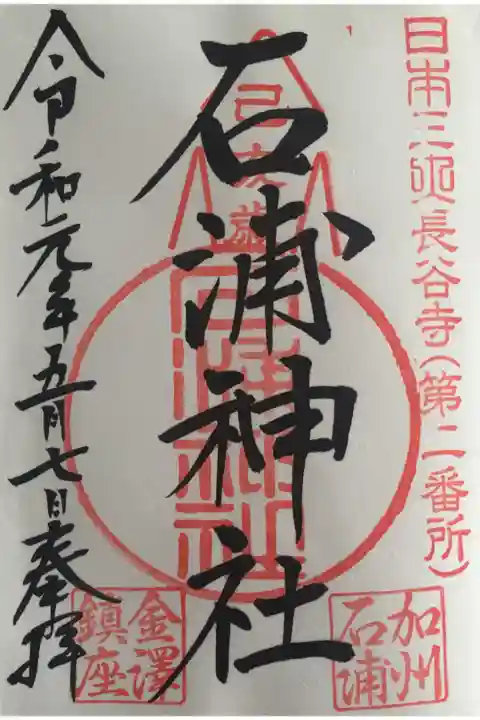 日本三所長谷寺(第二番所)
石浦神社
令和元年五月七日奉拝
石浦神社
加州
石浦
金澤
鎮座